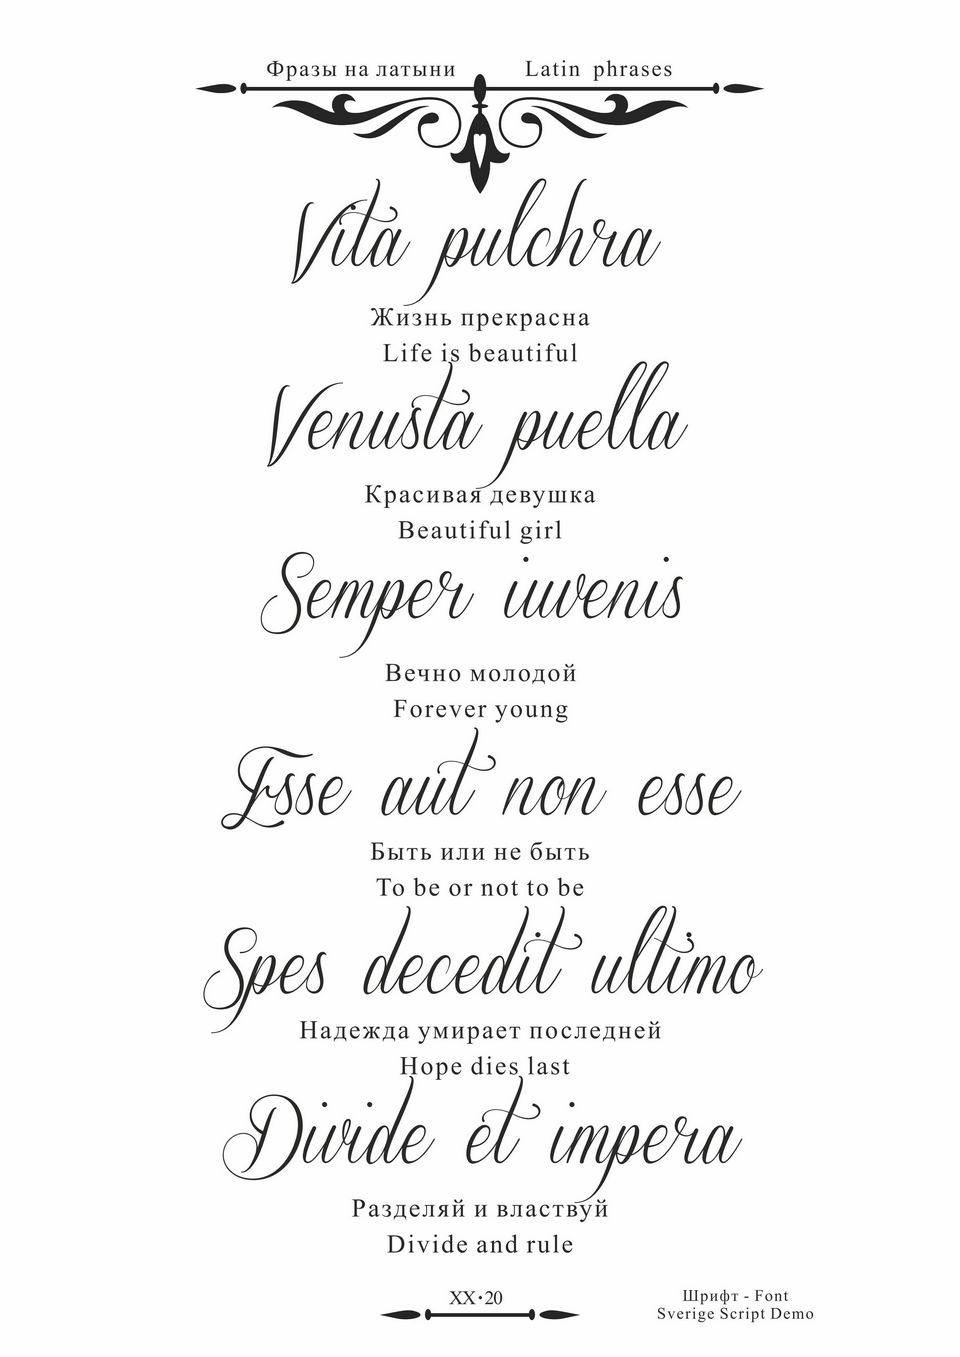 Фразы на латыни Latin phrases
Vita pulchra
Жизнь прекрасна
Life is beautiful
Venusta puella
Красивая девушка
Beautiful girl
Semper iuvenis
Вечно молодой
Forever young
Esse aut non esse
Быть или не быть
To be or not to be
Spes decedit ultimo
Надежда умирает последней
Hope dies last
Divide et impera
Разделяй и властвуй
Divide and rule
XX·20
Шрифт - Font
Sverige Script Demo